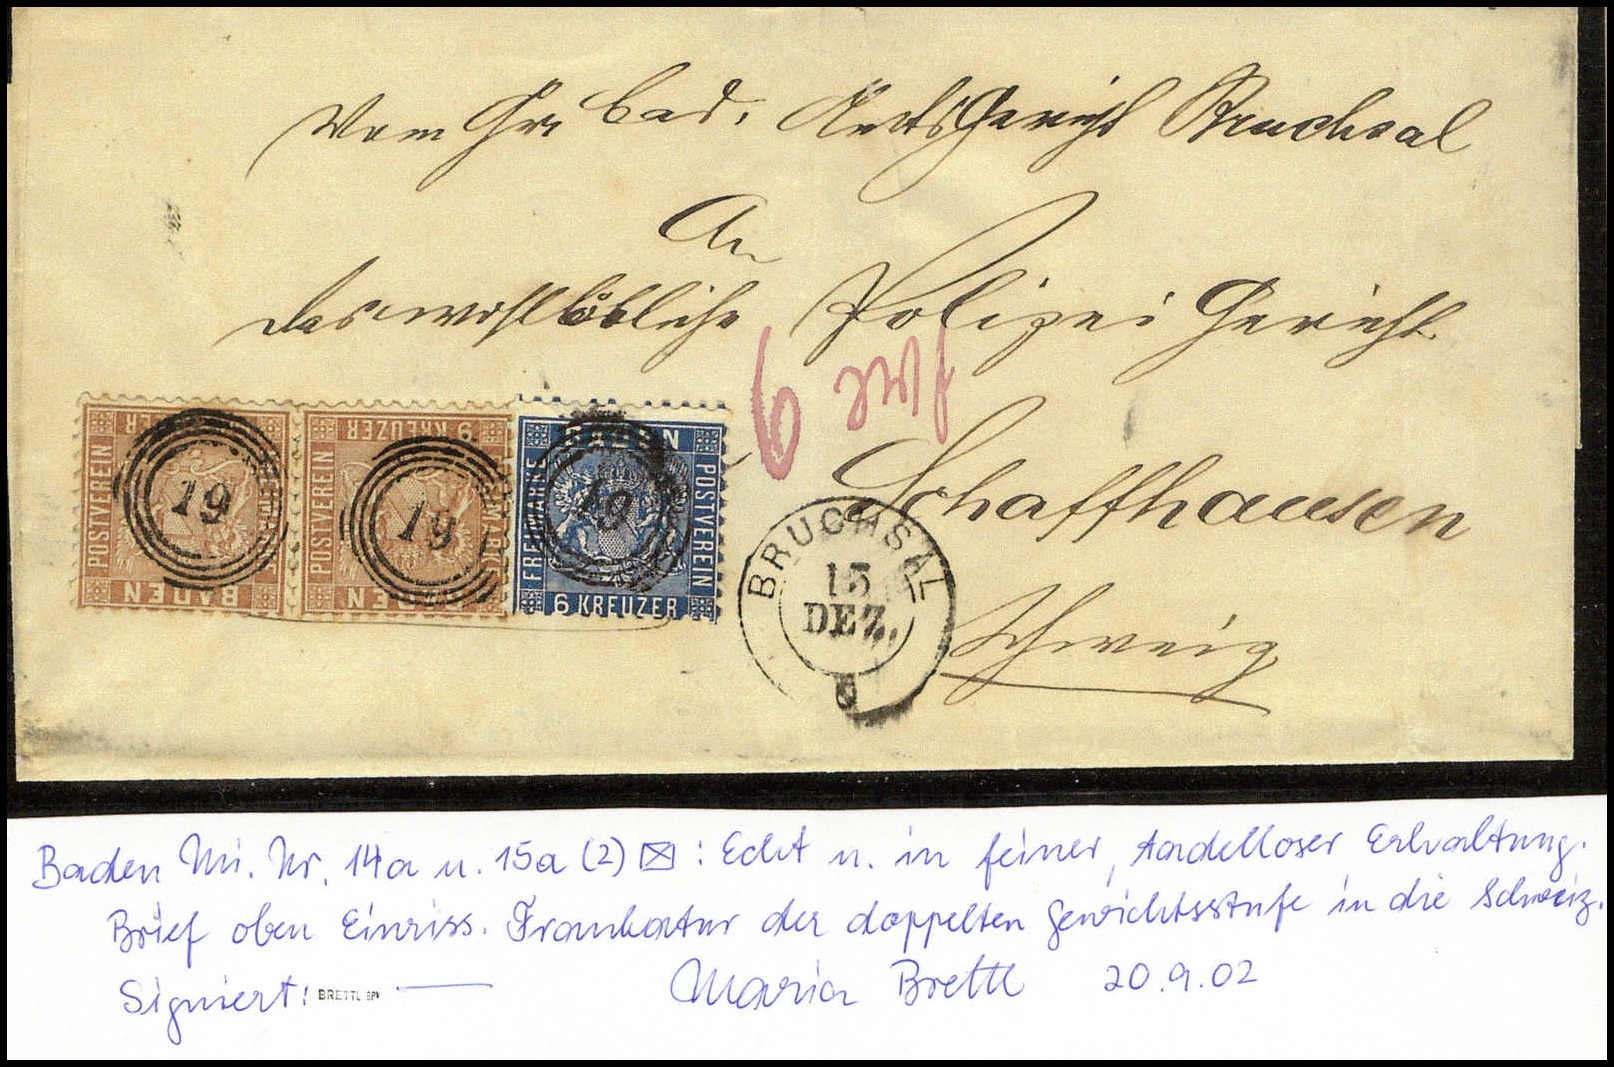 Vom Gr. bad. Amtsgericht Bruchsal
An
das wohllöbliche Polizei Gericht
6
Schaffhausen
Schweiz
POSTVEREIN
BADEN
19
9 KREUZER
POSTVEREIN
BADEN
19
BADEN
FREIMARKE
POSTVEREIN
6 KREUZER
19
BRUCHSAL
15
DEZ.
Baden Mi. Nr. 14a u. 15a (2) : Echt u. in feiner, tadelloser Erhaltung.
Brief oben Einriss. Frankatur der doppelten Gewichtsstufe in die Schweiz.
Signiert: BRETTL BPP
Maria Brettl 20.9.02